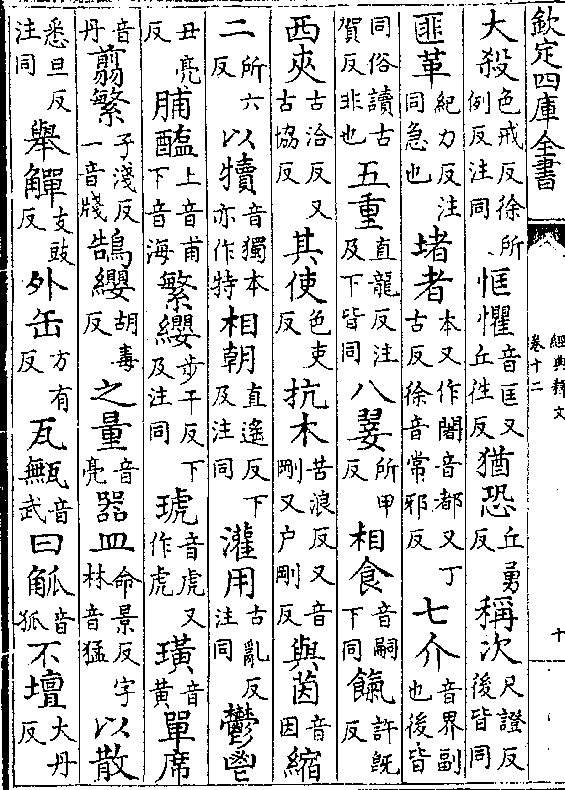 欽定四庫全書
經典釋文
卷十二
十
大殺色戒反徐所例反注同恇懼音匡又丘往反猶恐丘勇反稱次尺證反後皆同
匪革紀力反注同急也堵者本又作闍音都又丁古反徐音常邪反七介音界副也後皆
同俗讀古賀反非也五重直龍反注及下皆同八翣所甲反相食音嗣下同餼許旣反
西夾古洽反又古協反其使色吏反抗木苦浪反又音剛又户剛反與茵音因縮
二所六反以犢音獨本亦作特相朝直遙反下及注同灌用古亂反注同鬱鬯
丑亮反脯醢上音甫下音海繁纓步干反下及注同琥音虎又作虎璜音黄單席
音丹翦繁子淺反一音牋鵠纓胡毒反之量音亮器皿命景反字林音猛以散
悉旦反注同舉觶支豉反外缶方有反瓦甒音武曰觚音狐不壇大丹反